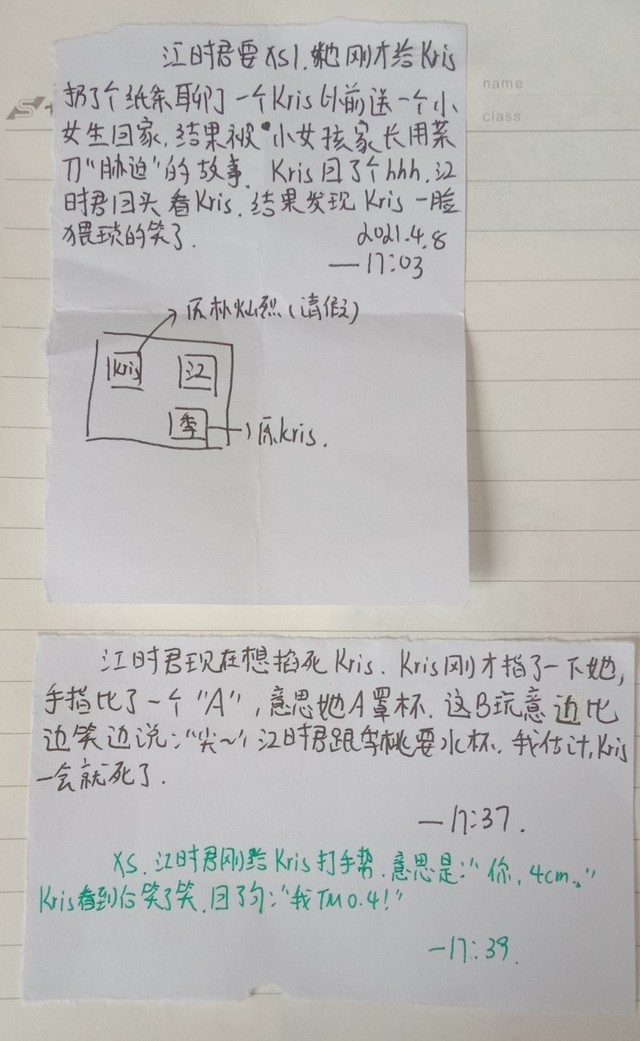 name
class
江时君要xs1.她刚才给Kris
扔了个纸条聊了一个Kris以前送一个小
女生回家,结果被小女孩家长用菜
刀"胁迫"的故事. Kris回了个hhh.江
时君回头看Kris.结果发现Kris一脸
猥琐的笑了.
2021.4.8
—17:03
原朴灿烈(请假)
Kris
江
季
原kris.
江时君现在想掐死Kris. Kris刚才指了一下她,
手指比了一个"A",意思她A罩杯.这B玩意边比
边笑边说:"尖~"江时君跟李桃要水杯.我估计,Kris
一会就死了.
—17:37.
XS.江时君刚给Kris打手势.意思是:"你,4cm。"
Kris看到后笑了笑.回了句:"我TM0.4!"
—17:39.